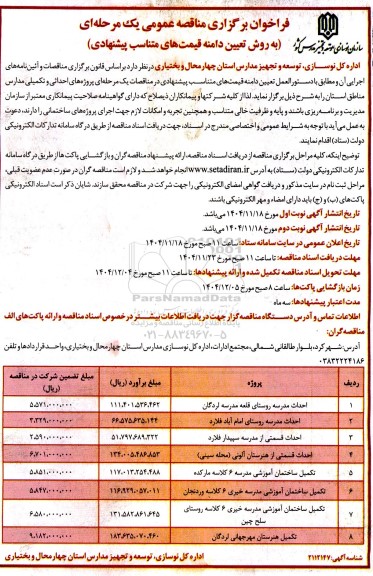 فراخوان برگزاری مناقصه عمومی یک مرحله‌ای
(به روش تعیین دامنه قیمت‌های متناسب پیشنهادی)
اداره کل نوسازی، توسعه و تجهیز مدارس استان چهارمحال و بختیاری در نظر دارد براساس قانون برگزاری مناقصات و آئین‌نامه‌های
اجرایی آن و مطابق با دستورالعمل تعیین دامنه قیمت‌های متناسب پیشنهادی در مناقصات یک مرحله‌ای پروژه‌های احداثی و تکمیلی مدارس
مناطق استان را به شرح ذیل برگزار نماید. لذا از کلیه شرکتها و پیمانکاران ذیصلاح که دارای گواهینامه صلاحیت پیمانکاری معتبر از سازمان
مدیریت و برنامه‌ریزی باشند و پایه و ظرفیت خالی متناسب و همچنین تجربه و امکانات لازم جهت اجرای پروژه‌های ساختمانی را دارند، دعوت
به عمل می‌آید با توجه به شرایط عمومی و اختصاصی مندرج در اسناد، جهت دریافت اسناد مناقصه از طریق درگاه سامانه تدارکات الکترونیکی
دولت (ستاد) اقدام نمایند.
توضیح اینکه، کلیه مراحل برگزاری مناقصه از دریافت اسناد مناقصه، ارائه پیشنهاد مناقصه گران و بازگشایی پاکت‌ها از طریق درگاه سامانه
تدارکات الکترونیکی دولت (ستاد) به آدرس www.setadiran.ir انجام خواهد شد و لازم است مناقصه گران در صورت عدم عضویت قبلی،
مراحل ثبت نام در سایت مذکور و دریافت گواهی امضای الکترونیکی را جهت شرکت در مناقصه محقق سازند. شایان ذکر است اسناد الکترونیکی
پاکت‌های (ب) و (ج) باید دارای امضاء و مهر الکترونیکی باشند.
تاریخ انتشار آگهی نوبت اول مورخ ۱۴۰۴/۱۱/۱۸ می‌باشد.
تاریخ انتشار آگهی نوبت دوم مورخ ۱۴۰۴/۱۱/۱۸ می‌باشد.
تاریخ اعلان عمومی در سایت سامانه ستاد: ساعت ۱۱ صبح مورخ ۱۴۰۴/۱۱/۱۸
مهلت دریافت اسناد مناقصه: تا ساعت ۱۱ صبح مورخ ۱۴۰۴/۱۱/۲۳
مهلت تحویل اسناد مناقصه تکمیل شده و ارائه پیشنهادها: تا ساعت ۱۱ صبح مورخ ۱۴۰۴/۱۲/۰۴
زمان بازگشایی پاکت‌ها: ساعت ۸ صبح مورخ ۱۴۰۴/۱۲/۰۵
مدت اعتبار پیشنهادها: سه ماه
اطلاعات تماس و آدرس دستگاه مناقصه گزار جهت دریافت اطلاعات بیشتر در خصوص اسناد مناقصه و ارائه پاکت‌های الف
مناقصه گران:
آدرس: شهرکرد، بلوار طالقانی شمالی، مجتمع ادارات، اداره کل نوسازی مدارس استان چهارمحال و بختیاری، واحد قراردادها و تلفن
۰۳۸۳۲۲۲۴۱۸۶
ردیف پروژه مبلغ برآورد (ریال) مبلغ تضمین شرکت در مناقصه (ریال)
۱ احداث مدرسه روستای قلعه مدرسه لردگان ۱۱۱.۴۰۱.۵۳۶.۴۶۲ ۵.۵۷۱.۰۰۰.۰۰۰
۲ احداث مدرسه روستای امام آباد فلارد ۶۶.۵۷۵.۶۳۵.۱۴۴ ۳.۳۲۹.۰۰۰.۰۰۰
۳ احداث قسمتی از مدرسه سپیدار فلارد ۵۱.۷۹۷.۶۸۹.۳۲۲ ۲.۵۹۰.۰۰۰.۰۰۰
۴ احداث قسمتی از هنرستان آلونی (محله سینی) ۱۳۴.۰۰۵.۴۸۶.۸۵۳ ۶.۷۰۱.۰۰۰.۰۰۰
۵ تکمیل ساختمان آموزشی مدرسه ۶ کلاسه مارکده ۱۱۷.۰۱۳.۲۵۴.۴۸۸ ۵.۸۵۱.۰۰۰.۰۰۰
۶ تکمیل ساختمان آموزشی مدرسه خیری ۶ کلاسه وردنجان ۱۱۶.۹۲۹.۰۵۷.۰۱۱ ۵.۸۴۷.۰۰۰.۰۰۰
۷ تکمیل ساختمان آموزشی مدرسه خیری ۶ کلاسه روستای سلح چین ۱۳۱.۵۸۲.۸۶۱.۶۴۵ ۶.۵۸۰.۰۰۰.۰۰۰
۸ تکمیل هنرستان مهرجهانی لردگان ۱۸۳.۶۳۵.۰۷۰.۴۶۰ ۹.۱۸۲.۰۰۰.۰۰۰
شناسه آگهی: ۲۱۱۲۱۴۷ اداره کل نوسازی، توسعه و تجهیز مدارس استان چهارمحال و بختیاری
ParsNamadData
۰۲۱-۸۸۳۴۹۶۷۰-۵